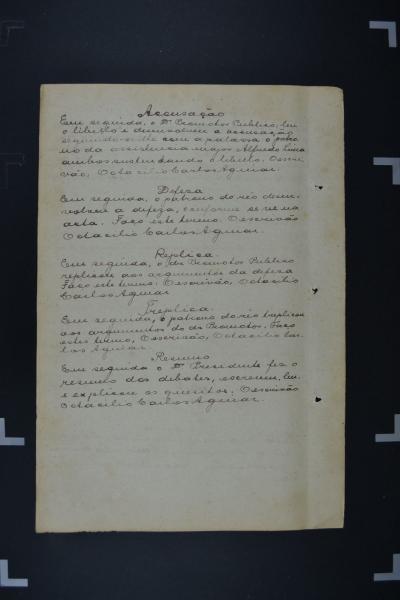 Accusação
Em seguida, o Dr. Promotor Publico, leu
o libello e desenvolveu a accusação
seguindo-se com a palavra o patro
no da assistencia major Alfredo Lima
ambos sustentando o libello. O escri
vão, Octacilio Carlos Aguiar.
Defeza
Em seguida, o patrono do réo desen
volveu a defeza, conforme se ve na
acta. Faço este termo. O escrivão
Octacilio Carlos Aguiar.
Replica.
Em seguida, o dr. Promotor Publico
replicou aos argumentos da defeza
Faço este termo. O escrivão, Octacilio
Carlos Aguiar
Treplica.
Em seguida, o patrono do réo treplicou
aos argumentos do dr. Promotor. Faço
este termo, O escrivão, Octacilio Car
los Aguiar.
Resumo
Em seguida o Dr. Presidente fez o
resumo dos debates, escreveu, leu
e explicou os quesitos. O escrivão
Octacilio Carlos Aguiar.